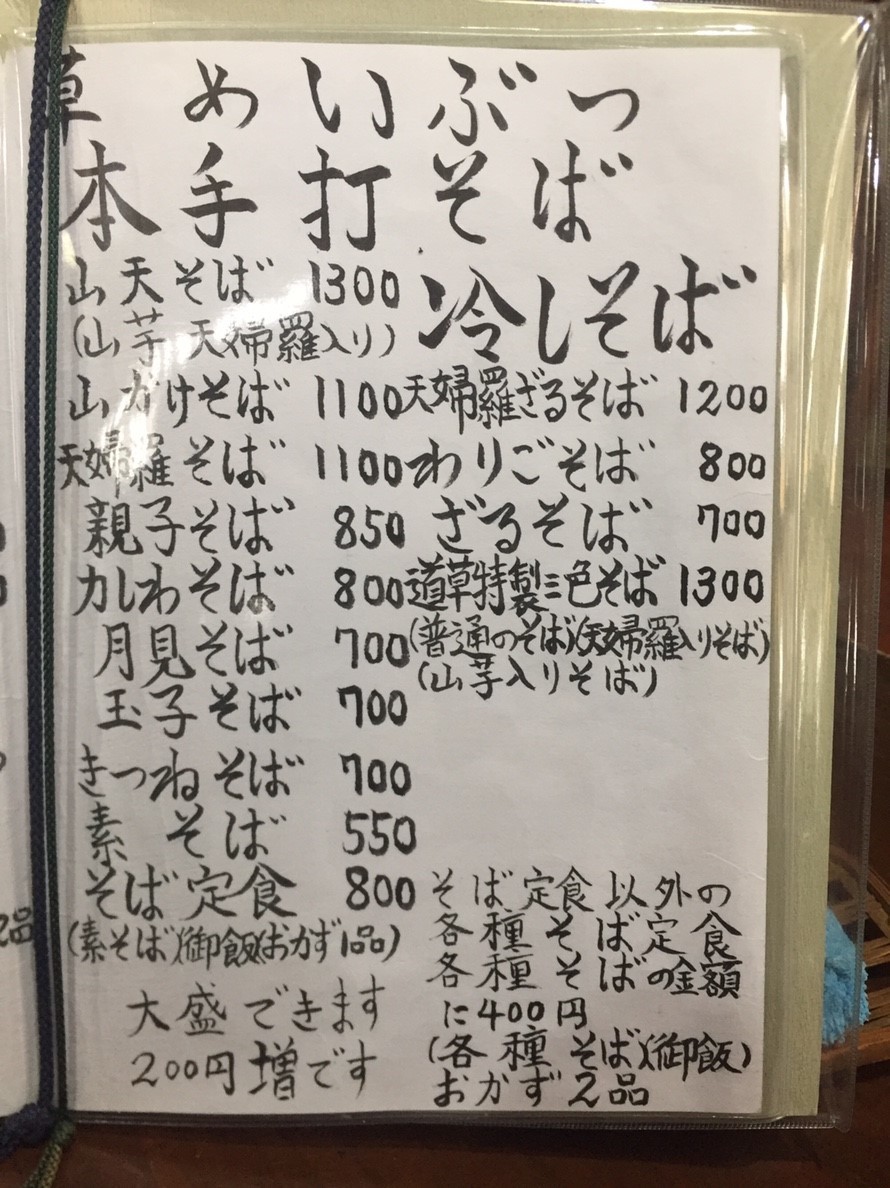 草めいぶつ
本手打そば
山天そば 1300
(山芋 天婦羅入り)
山かけそば 1100
天婦羅そば 1100
親子そば 850
かしわそば 800
月見そば 700
玉子そば 700
きつねそば 700
素そば 550
そば定食 800
(素そば)(御飯)(おかず1品)
大盛できます
200円増です
冷しそば
天婦羅ざるそば 1200
わりごそば 800
ざるそば 700
道草特製三色そば 1300
(普通のそば)(天婦羅入りそば)
(山芋入りそば)
そば定食以外の
各種そば定食
各種そばの金額
に400円
(各種そば)(御飯)
おかず2品